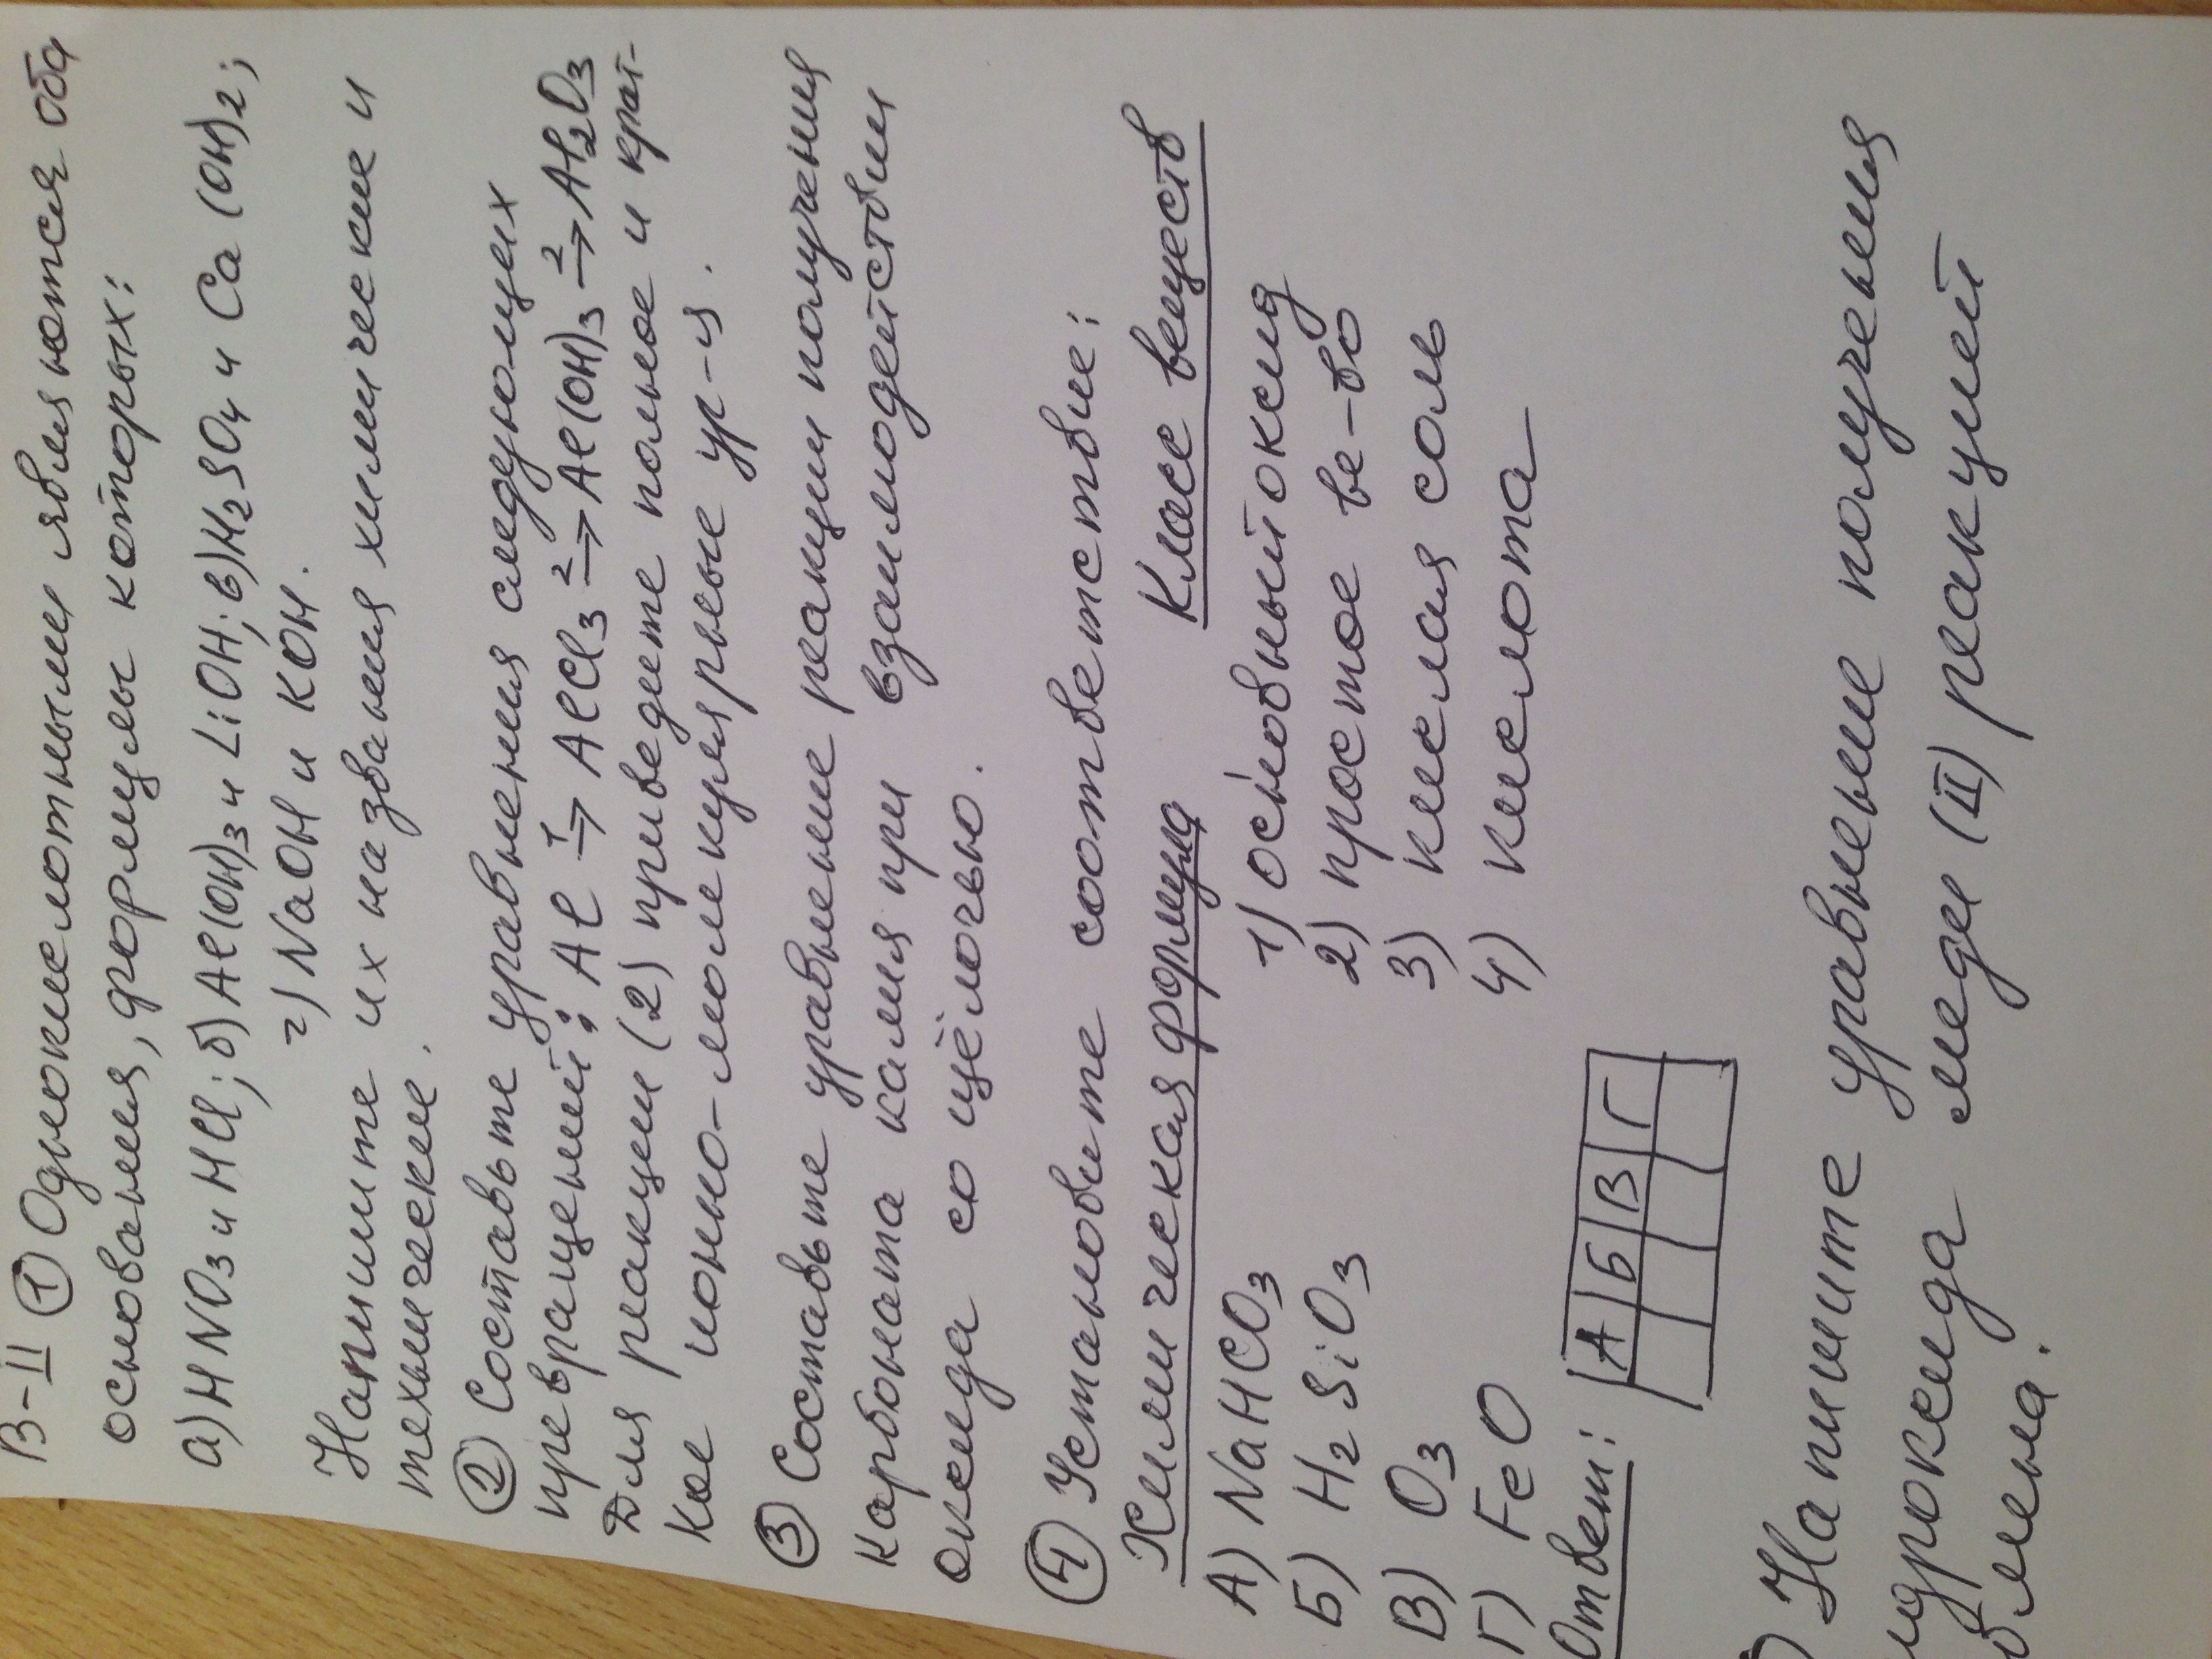 В-II ① Однокислотными являются оба
основания, формулы которых:
а) HNO3 и HCl; б) Al(OH)3 и LiOH; в) H2SO4 и Ca(OH)2;
г) NaOH и KOH.
Напишите их названия химические и
технические.
② Составьте уравнения следующих
превращений: Al 1→ AlCl3 2→ Al(OH)3 2→ Al2O3
Для реакции (2) приведите полное и крат-
кое ионно-молекулярные ур-я.
③ Составьте уравнение реакции получения
карбоната калия при взаимодействии
оксида со щёлочью.
④ Установите соответствие:
Химическая формула Класс веществ
А) NaHCO3 1) основный оксид
Б) H2SiO3 2) простое ве-во
В) O3 3) кислая соль
Г) FeO 4) кислота
Ответ: А Б В Г
Напишите уравнение получения
идроксида меди (II) реакцией
обмена.